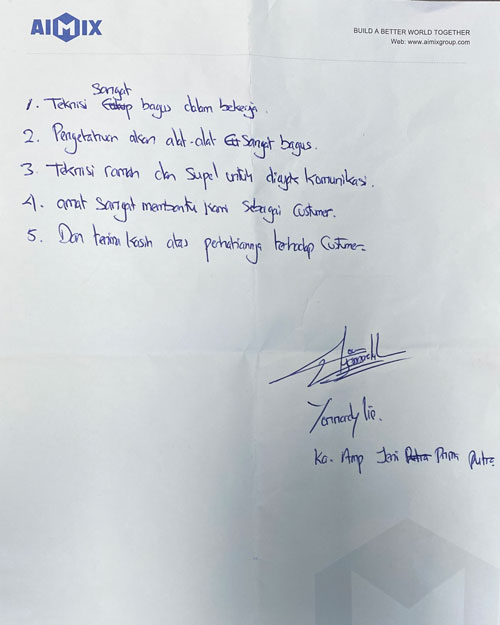 AIMIX
BUILD A BETTER WORLD TOGETHER
Web: www.aimixgroup.com
Sangat
1. Teknisi bagus dalam bekerja.
2. Pengetahuan akan alat-alat sangat bagus.
3. Teknisi ramah dan supel untuk diajak komunikasi.
4. amat sangat membantu kami sebagai Custumer.
5. Dan terima kasih atas perhatiannya terhadap Custumer.
Yonnardy lie.
Ka. Amp Putra